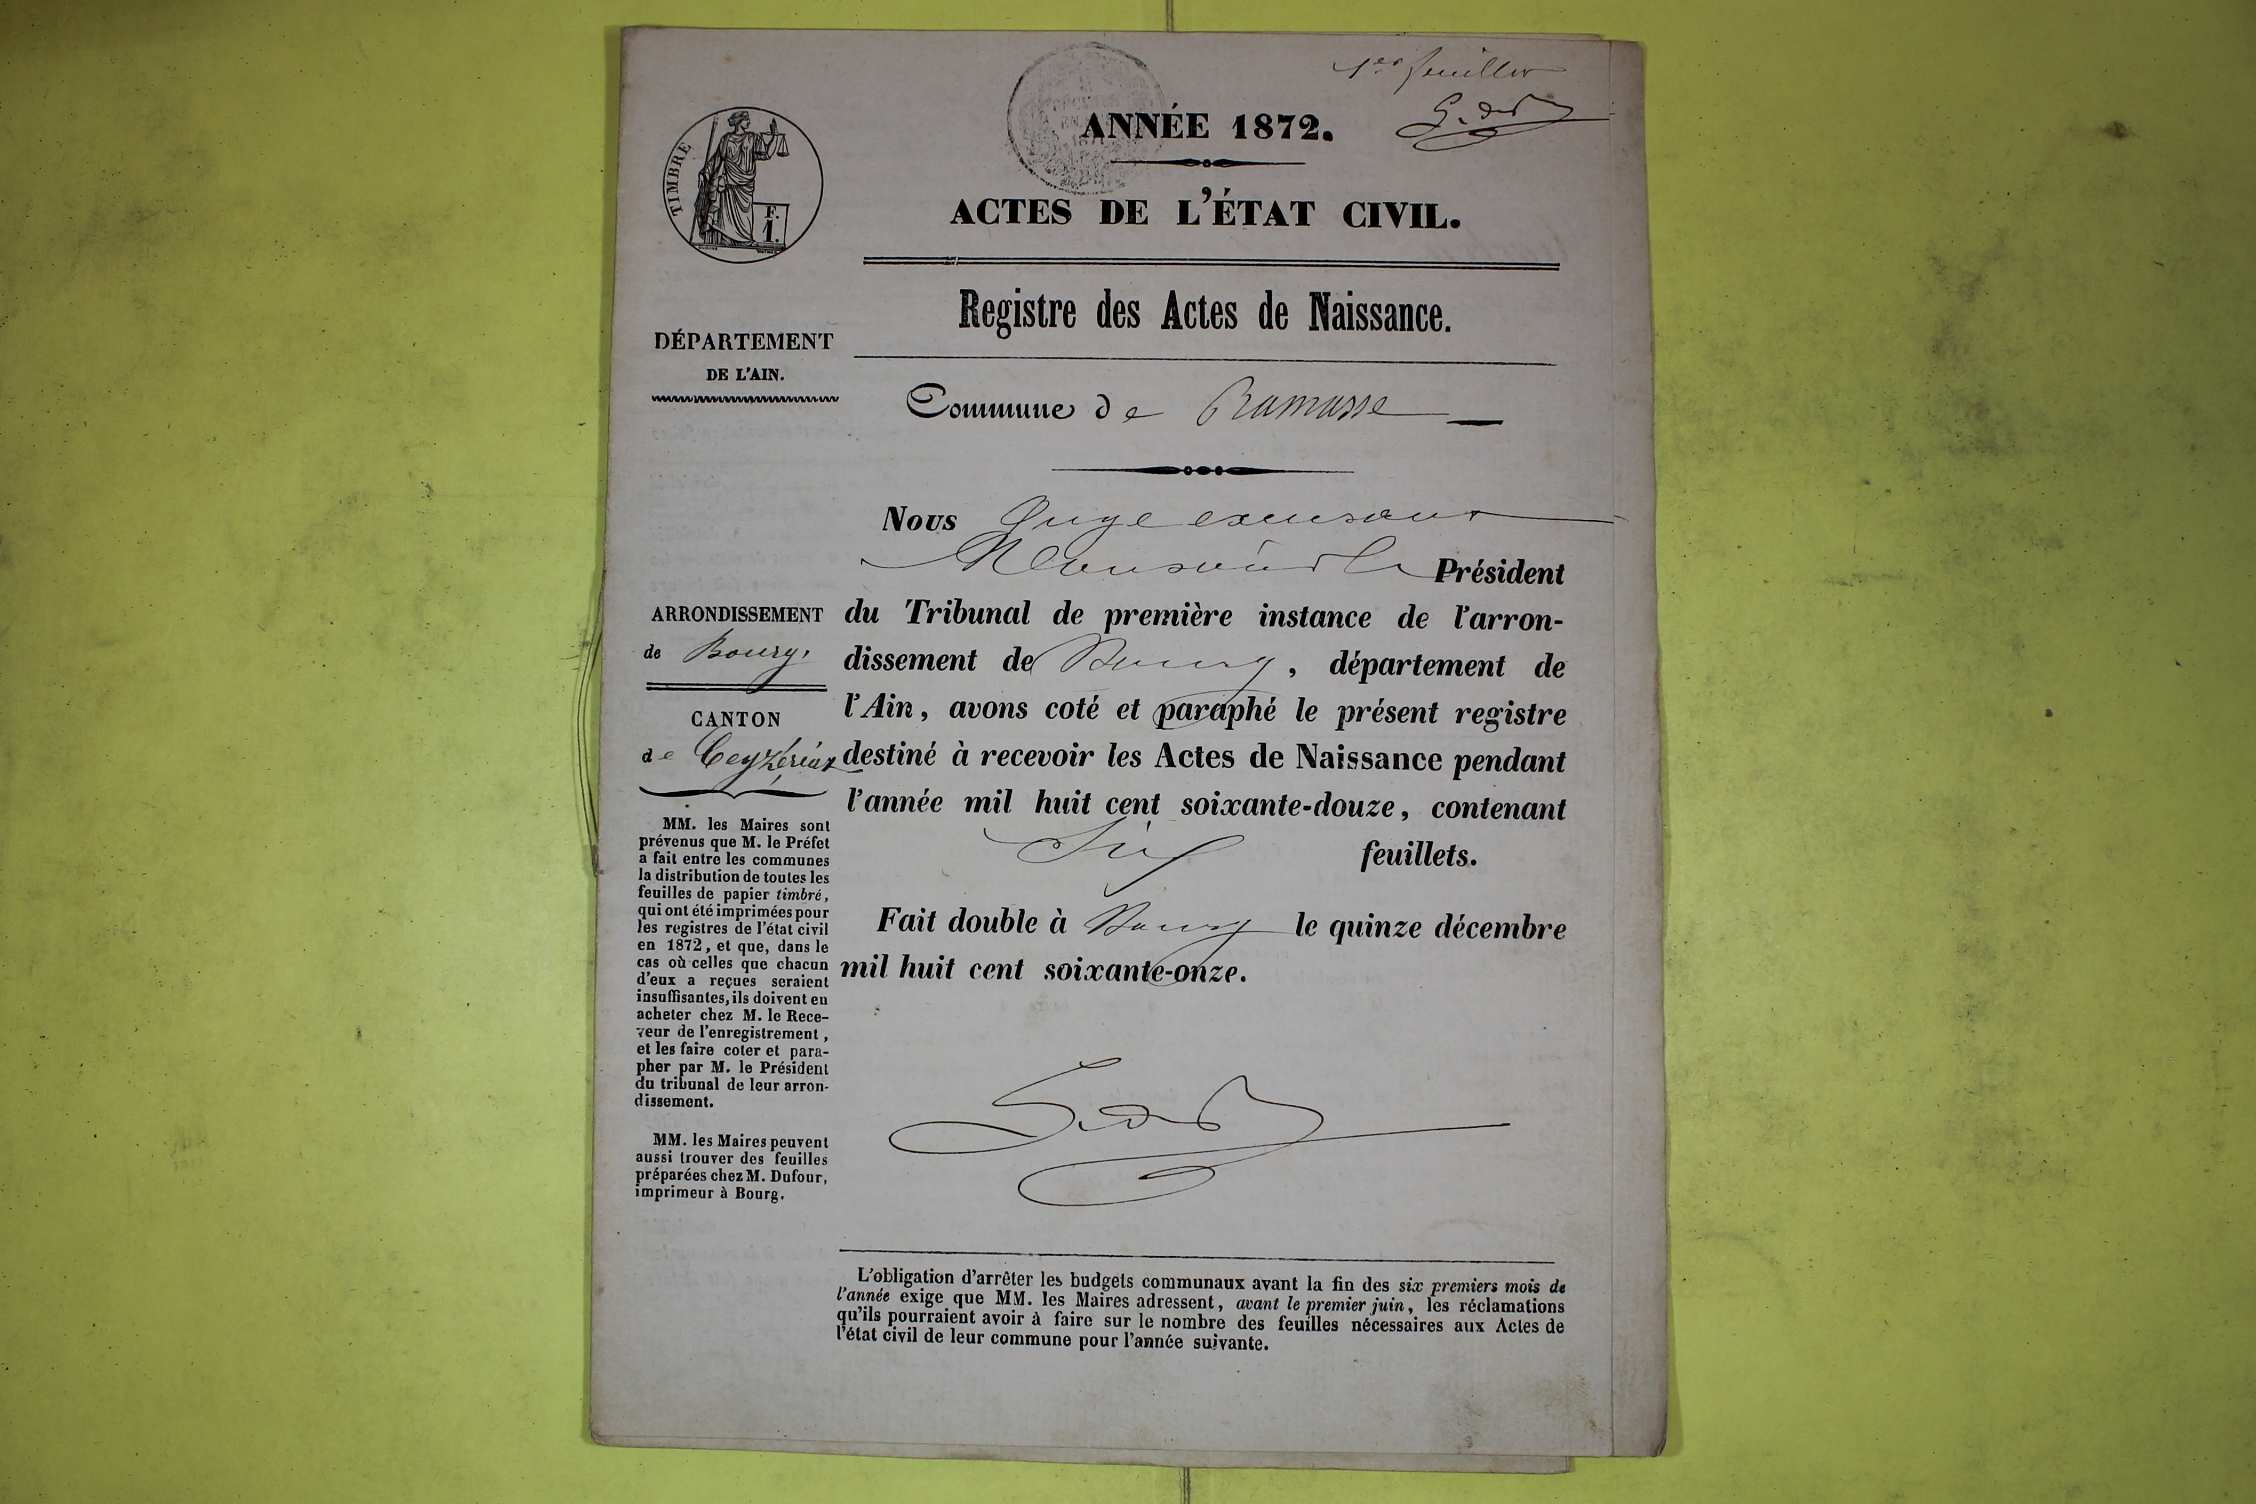 1er feuillet
ANNÉE 1872.
TIMBRE
F.
1.
ACTES DE L'ÉTAT CIVIL.
Registre des Actes de Naissance.
DÉPARTEMENT
DE L'AIN.
Commune de Ramasse
ARRONDISSEMENT
de Bourg.
CANTON
de Ceyzériat
MM. les Maires sont
prévenus que M. le Préfet
a fait entre les communes
la distribution de toutes les
feuilles de papier timbré,
qui ont été imprimées pour
les registres de l'état civil
en 1872, et que, dans le
cas où celles que chacun
d'eux a reçues seraient
insuffisantes, ils doivent en
acheter chez M. le Rece-
veur de l'enregistrement,
et les faire coter et para-
pher par M. le Président
du tribunal de leur arron-
dissement.
MM. les Maires peuvent
aussi trouver des feuilles
préparées chez M. Dufour,
imprimeur à Bourg.
Nous Juge
Président
du Tribunal de première instance de l'arron-
dissement de Bourg, département de
l'Ain, avons coté et paraphé le présent registre
destiné à recevoir les Actes de Naissance pendant
l'année mil huit cent soixante-douze, contenant
Six feuillets.
Fait double à Bourg le quinze décembre
mil huit cent soixante-onze.
L'obligation d'arrêter les budgets communaux avant la fin des six premiers mois de
l'année exige que MM. les Maires adressent, avant le premier juin, les réclamations
qu'ils pourraient avoir à faire sur le nombre des feuilles nécessaires aux Actes de
l'état civil de leur commune pour l'année suivante.